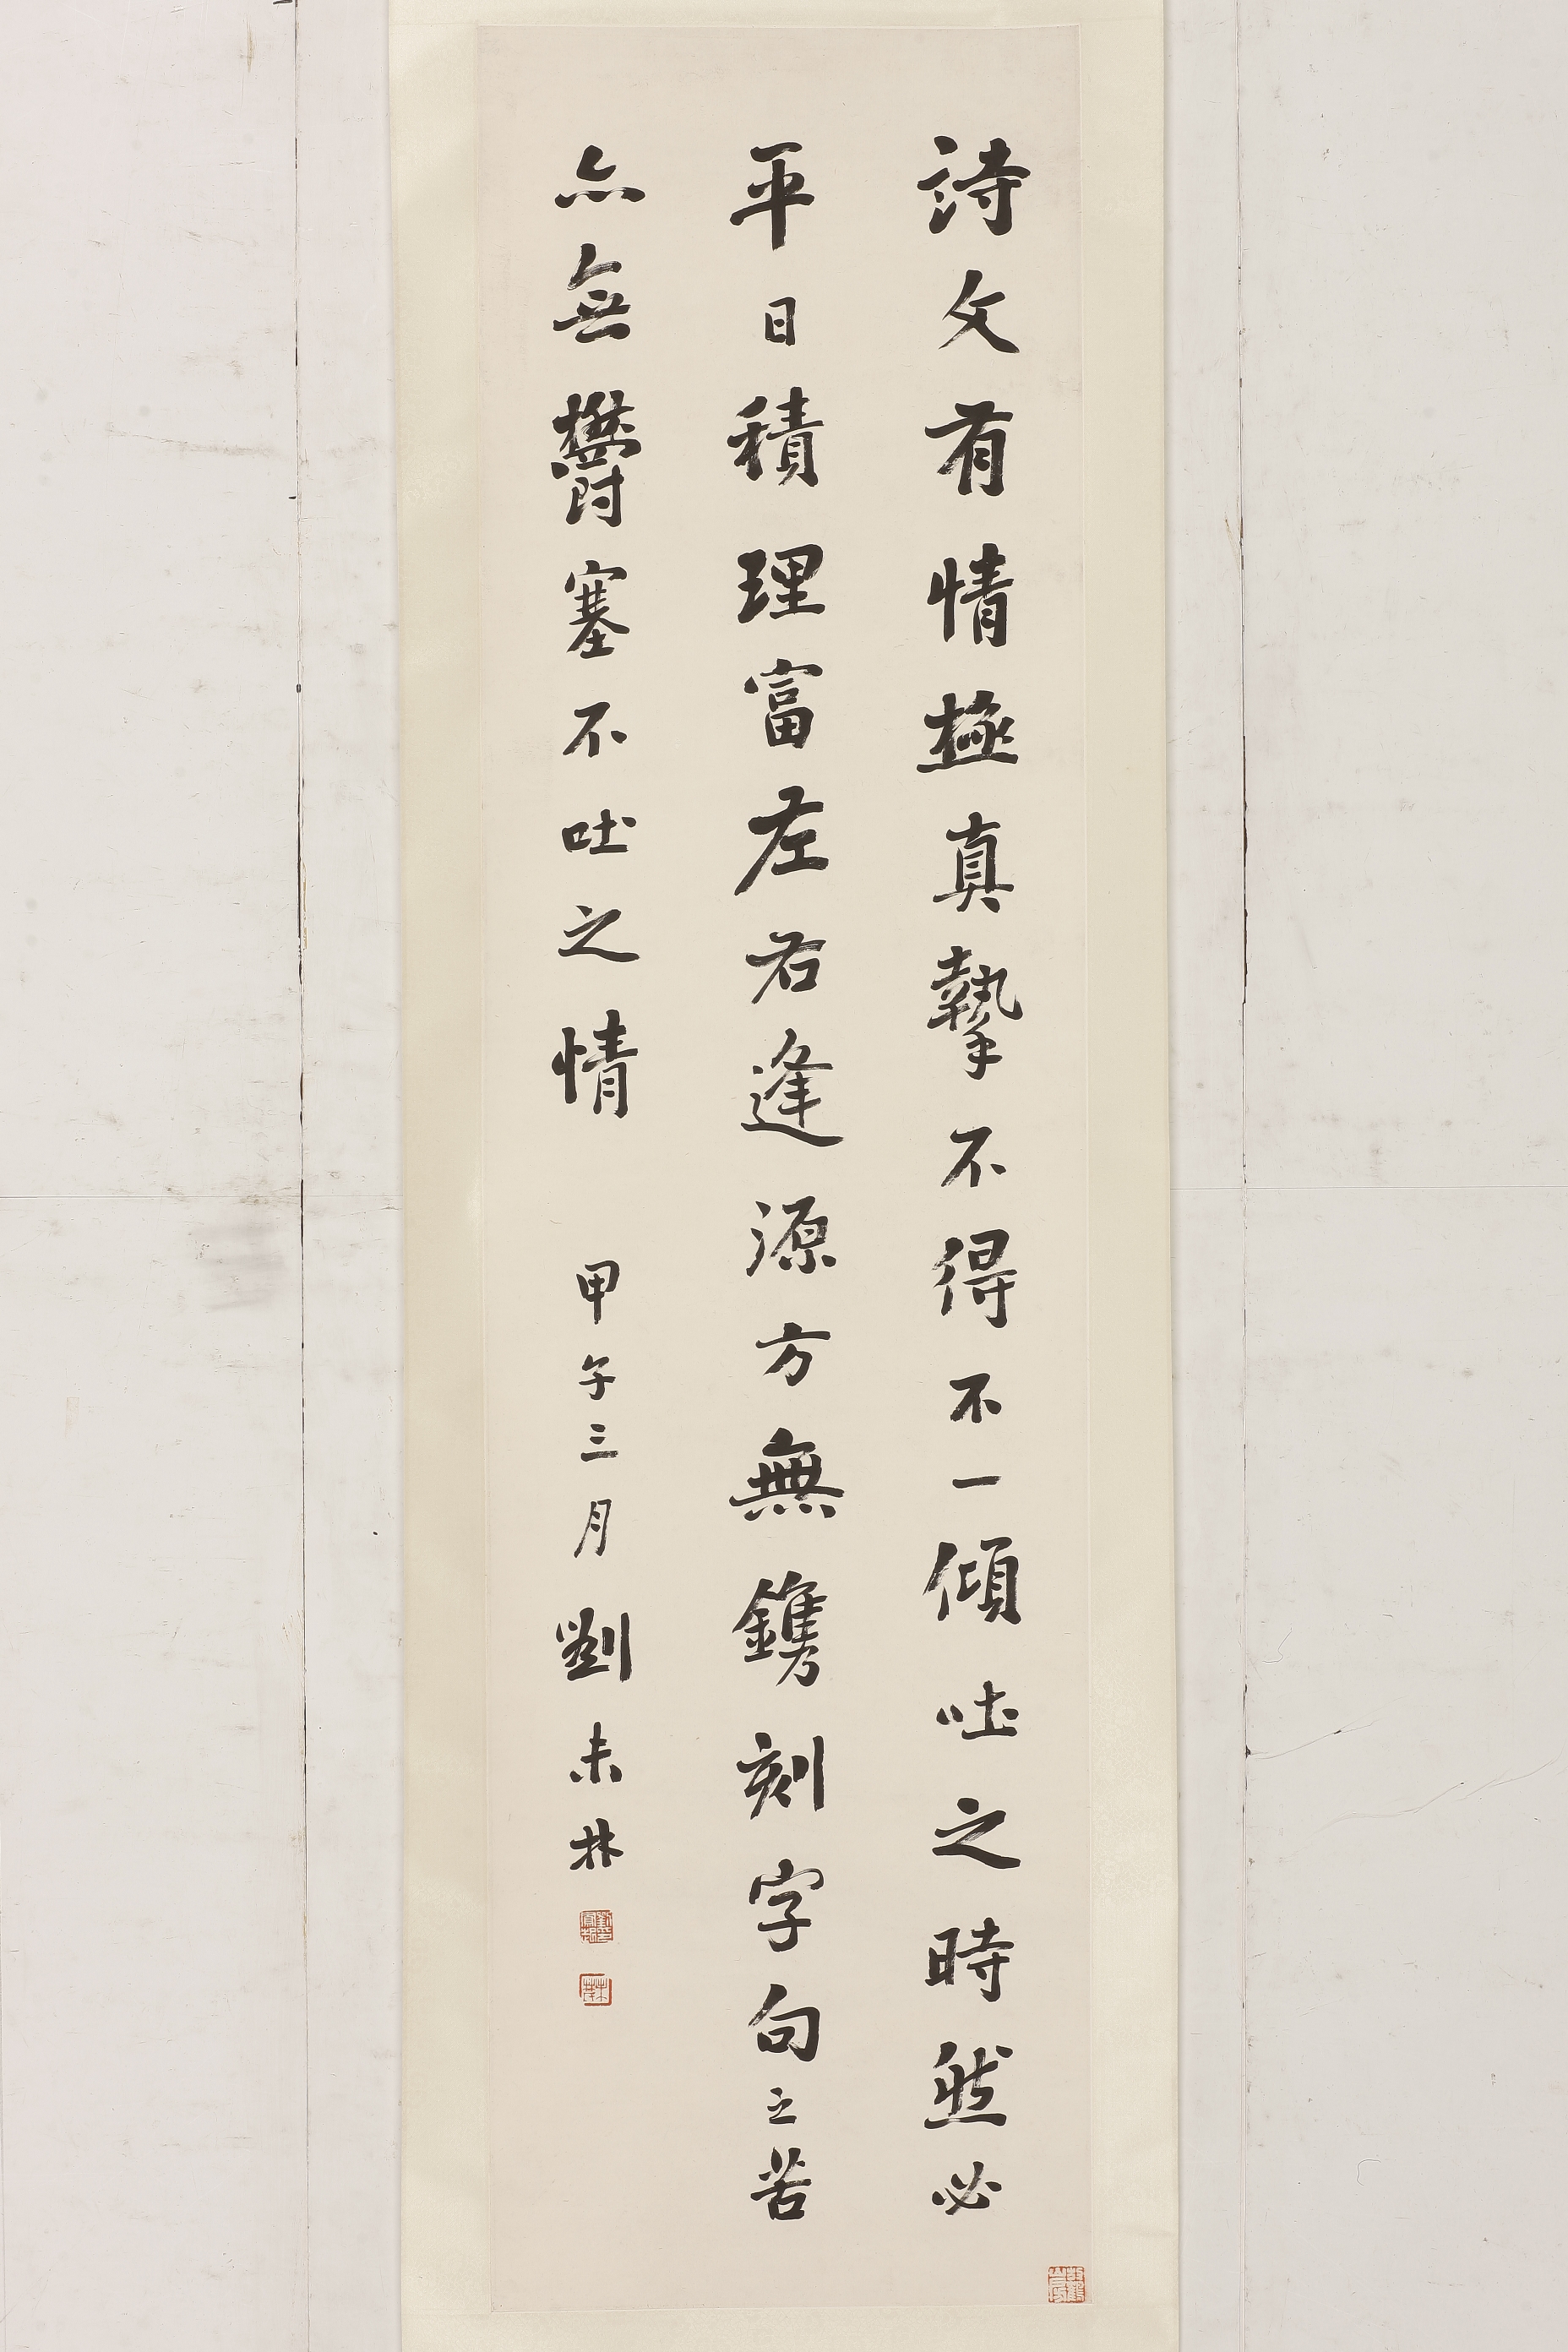 詩文有情極真摯不得不一傾吐之時然必
平日積理富左右逢源方無鐫刻字句之苦
亦無鬱塞不吐之情
甲午三月劉未林